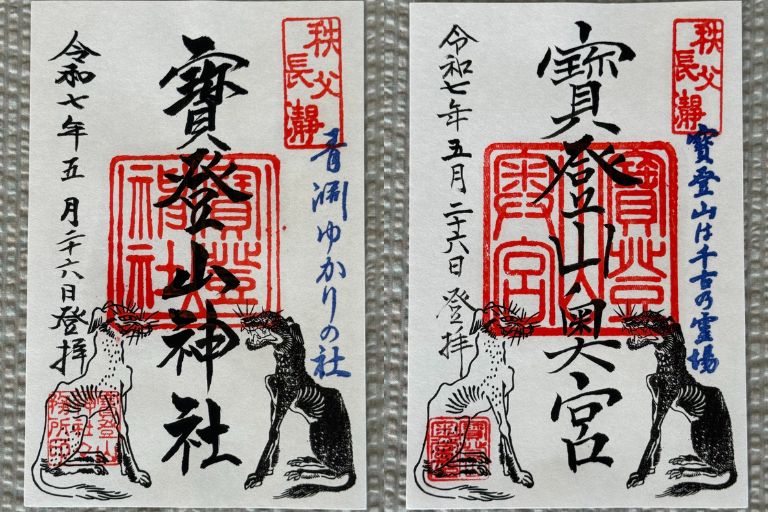 秩父
長瀞
青淵ゆかりの社
寶登山神社
寶登山
神社
令和七年五月二十六日登拝
寶登山
神社
務所印
秩父
長瀞
寶登山は千古乃霊場
寶登山奥宮
寶登山
奥宮
令和七年五月二十六日登拝
寶登山
奥宮